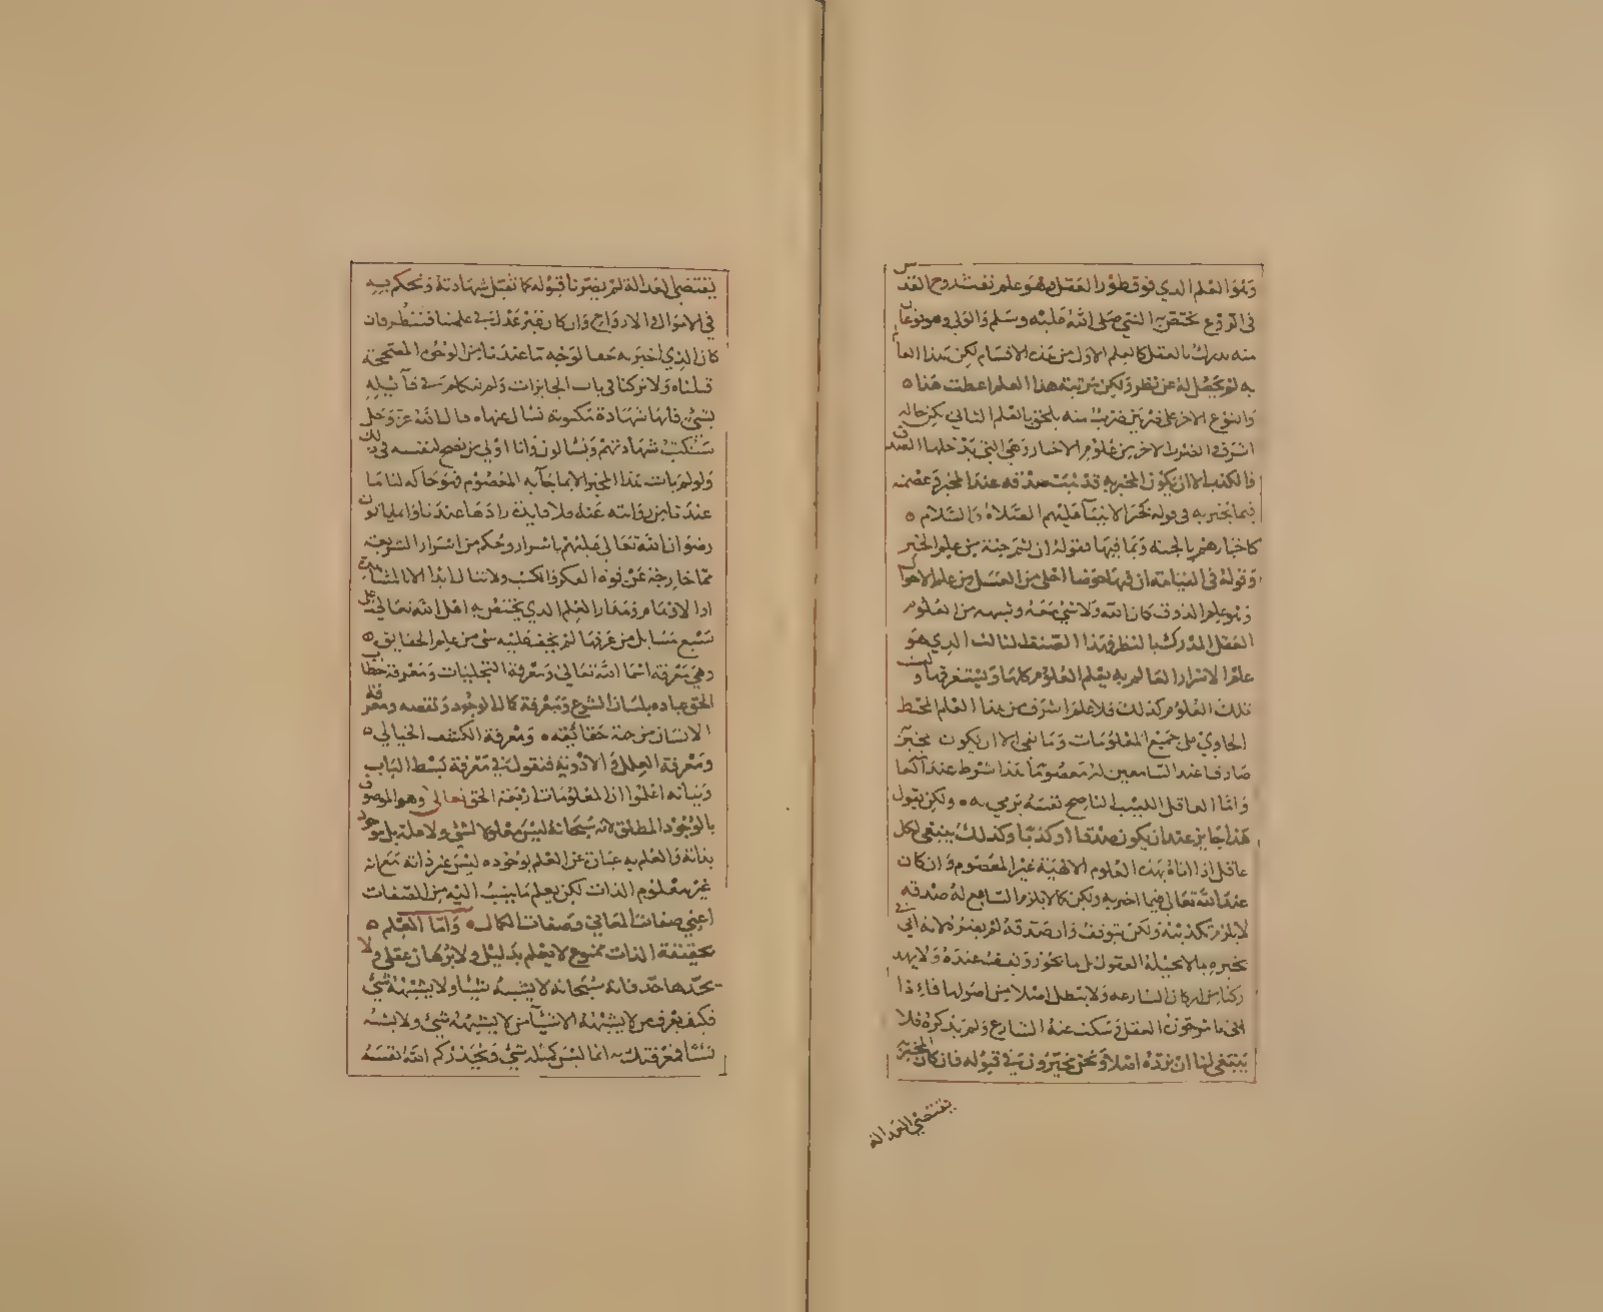 وهو العلم الذي فوق طور العقل وهو علم نفث روح القدس
في الروع يختص به النبي صلى الله عليه وسلم والولي وهو نوعان
منه يدرك بالعقل كالعلم الاول من هذه الاقسام لكن هذا العالم
به لم يحصل له عن نظر ولكن مرتبة هذا العلم اعطت هذا ٥
والنوع الاخر على ضربين ضرب منه يلحق بالعلم الثاني لكن حاله
اشرف والضرب الاخر من علوم الاخبار وهي التي يدخلها الصدق
والكذب الا ان يكون المخبر به قد ثبت صدقه عند المخبر وعصمته
فيما يخبر به في قوله كخبر الانبيآ عليهم الصلاة والسلام ٥
كاخبارهم بالجنة وبما فيها فقوله ان ثم جنة من علم الخبر
وقوله في القيامة ان فيها حوضا احلى من العسل من علم الاحوال
وهو علم الذوق كان الله ولا شي معه وشبهه من العلوم
العقل المدرك بالنظر فهذا الصنف الثالث الذي هو
علم الاسرار العالم به يعلم العلوم كلها ويستغرقها وليست
تلك العلوم كذلك فلا علم اشرف من هذا العلم المحيط
الحاوي على جميع المعلومات وما بقي الا ان يكون مخبره
صادقا عند السامعين له معصوما هذا شرط عند العامة
واما العاقل اللبيب الناصح نفسه يرمي به ولكن يقول
هذا جايز عندي ان يكون صدقا او كذبا وكذلك ينبغي لكل
عاقل اذا اتاه بهذه العلوم الالهية غير المعصوم وان كان
عند الله تعالى فيما اخبر به ولكن كما لا يلزم السامع له صدقه
لا يلزم تكذيبه ولكن يتوقف وان صدقه لم يضره لانه اتى
بخبره بما لا تحيله العقول بل بما تجوزه وتقف عنده ولا يهد
ركنا من اركان الشارعه ولا يبطل اصلا من اصولها فاذا
اتى بما جوزه العقل وسكت عنه الشارع ولم يذكره فلا
ينبغي لنا ان نرده اصلا ونحن مخيرون في قبوله فان كان المخبر
يقتضي العدالة
يقتضي العدالة لم يضرنا قبوله كما نقبل شهادته ونحكم به
في الاموال والارواح وان كان غير عدل في علمنا فننظر فان
كان الذي اخبر به حقا لوجه ما عندنا من الوجوه المصححة
قبلناه ولا تركناه في باب الجايزات ولم نتكلم في قآئله
بشي فانها شهادة مكتوبه نسال عنها قال الله عز وجل
ستكتب شهادتهم ويسالون وانا اولي من نصح لنفسه في ذلك
ولو لم يات هذا المخبر الا بما جآ به المعصوم فهو حاك لنا ما
عندنا من رواية عنه فلا فايدة زادها عندنا وانما ياتون
رضوان الله تعالى عليهم باسرار وحكم من اسرار الشريعة
مما خارجة عن قوة الفكر والكسب ولا تنال ابدا الا بالمشاهدة
ومدار العلم الذي يختص به اهل الله تعالى على
سبع مسايل من عرفها لم يعتص عليه شي من علم الحقايق ٥
وهي معرفة اسما الله تعالى ومعرفة التجليات ومعرفة خطاب
الحق عباده بلسان الشرع ومعرفة كمال الوجود ونقصه ومعرفة
الانسان من جهة حقائقه ٥ ومعرفة الكشف الخيالي ٥
ومعرفة العلل والادوية فنقول في معرفة بسط الباب
وبيانه اعلموا ان المعلومات اربعة الحق تعالى وهو الموصوف
بالوجود المطلق لانه سبحانه ليس معلولا لشي ولا علة بل موجود
بذاته والعلم به عبارة عن العلم بوجوده ليس غير ذاته مع انه
غير معلوم الذات لكن يعلم ما ينسب اليه من الصفات
اعني صفات المعاني وصفات الكمال ٥ واما العلم ٥
بحقيقة الذات ممنوع لا يعلم بدليل ولا ببرهان عقلي ولا
يحدها حد فانه سبحانه لا يشبه شيا ولا يشبهه شي
فكيف يعرف من لا يشبهه الاشيآ من لا يشبهه شي ولا يشبه
شيا فمعرفتك به انما ليس كمثله شي ويحذركم الله نفسه